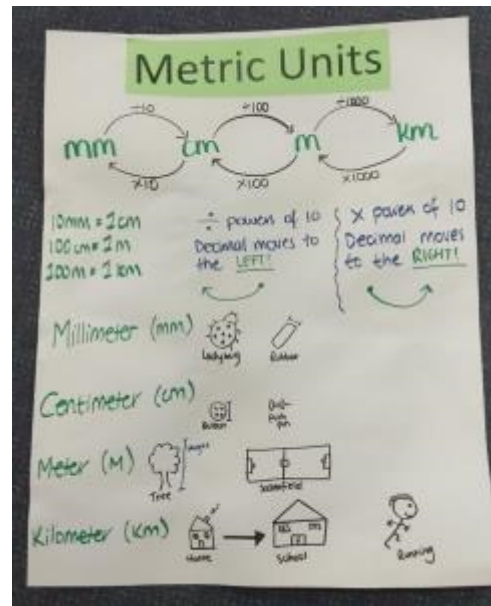 Metric Units
÷10 ÷100 ÷1000
mm cm m km
×10 ×100 ×1000
10mm = 1cm
100cm = 1m
100m = 1km
÷ powers of 10
Decimal moves to
the LEFT!
× power of 10
Decimal moves
to the RIGHT!
Millimeter (mm)
Ladybug Rubber
Centimeter (cm)
Button Push
pin
Meter (M)
Tree
Kilometer (Km)
Home School Running